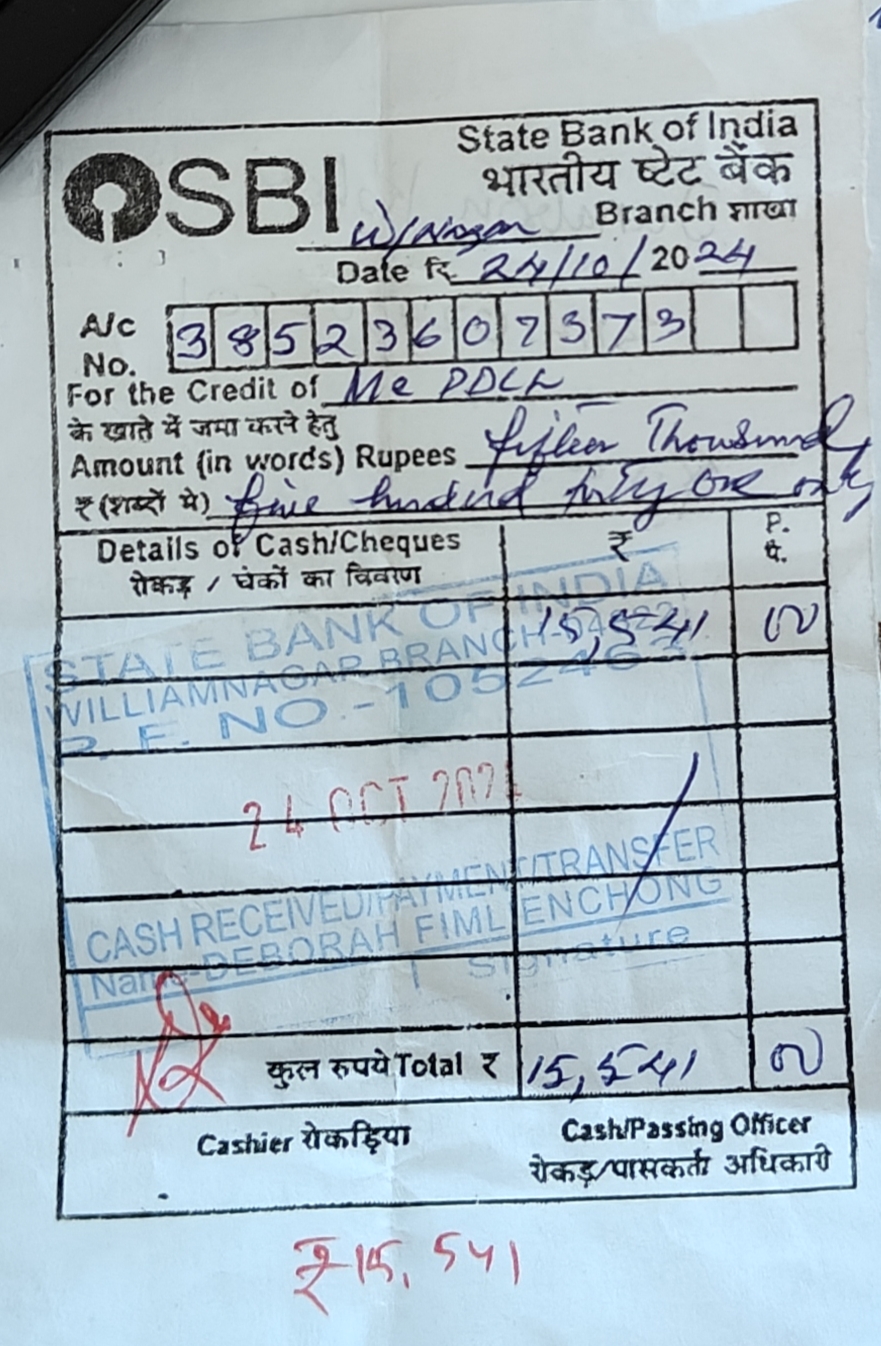 State Bank of India
भारतीय स्टेट बैंक
SBI
W/Nagar Branch शाखा
Date दि. 24/10/2024
A/c No. 38523607373
For the Credit of Me PDCL
के खाते में जमा करने हेतु
Amount (in words) Rupees fifteen Thousand
₹ (शब्दों में) five hundred forty one only
Details of Cash/Cheques ₹ P.
रोकड़ / चेकों का विवरण पै.
15,541 00
STATE BANK OF INDIA
WILLIAMNAGAR BRANCH
P. F. NO.-1052463
24 OCT 202
CASH RECEIVED/PAYMENT/TRANSFER
Name-DEBORAH FIML ENCHONG
Signature
कुल रुपये Total ₹ 15,541 00
Cashier रोकड़िया
Cash/Passing Officer
रोकड़/पासकर्ता अधिकारी
₹15,541